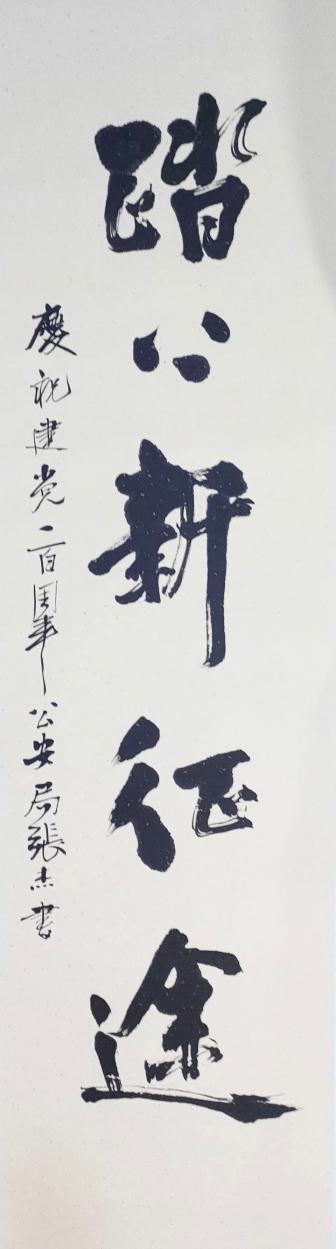 踏入新征途
慶祝建党一百周年公安局張杰書